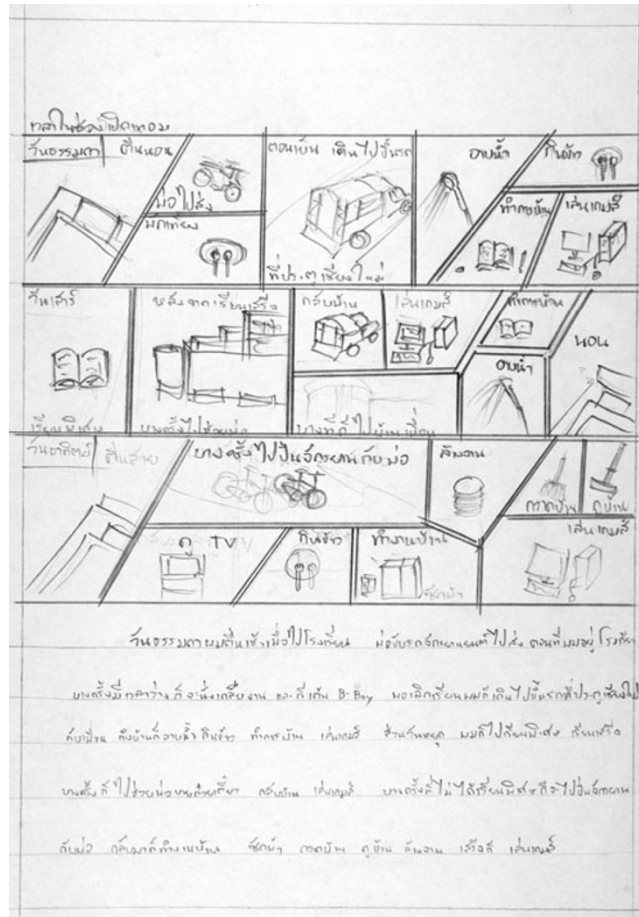 เวลาในช่วงเปิดเทอม
วันธรรมดา ตื่นนอน
พ่อไปส่ง
พักเที่ยง
ตอนเย็น เดินไปขึ้นรถ
ที่ประตูเชียงใหม่
อาบน้ำ
กินข้าว
ทำการบ้าน
เล่นเกมส์
วันเสาร์
เรียนพิเศษ
หลังจากเรียนเสร็จ
บางครั้งไปช่วยพ่อ
กลับบ้าน
เล่นเกมส์
บางทีก็ไปบ้านเพื่อน
ทำการบ้าน
อาบน้ำ
นอน
วันอาทิตย์ ตื่นสาย
บางครั้งไปปั่นจักรยานกับพ่อ
ล้างจาน
กวาดบ้าน
ถูบ้าน
ดู TV
กินข้าว
ทำงานบ้าน
ซักผ้า
เล่นเกมส์
วันธรรมดาผมตื่นเช้าเพื่อไปโรงเรียน พ่อขับรถจักรยานยนต์ไปส่ง ตอนที่ผมอยู่โรงเรียน
บางครั้งมีเวลาว่างก็จะนั่งเคลียงาน และก็เต้น B-Boy พอเลิกเรียนผมก็เดินไปขึ้นรถที่ประตูเชียงใหม่
กับเพื่อน ถึงบ้านก็อาบน้ำ กินข้าว ทำการบ้าน เล่นเกมส์ ส่วนวันหยุด ผมก็ไปเรียนพิเศษ เรียนเสร็จ
บางครั้งก็ไปช่วยพ่อขายก๋วยเตี๋ยว กลับบ้าน เล่นเกมส์ บางครั้งที่ไม่ได้เรียนพิเศษก็จะไปปั่นจักรยาน
กับพ่อ กลับมาก็ทำงานบ้าน ซักผ้า กวาดบ้าน ถูบ้าน ล้างจาน เสร็จก็ เล่นเกมส์